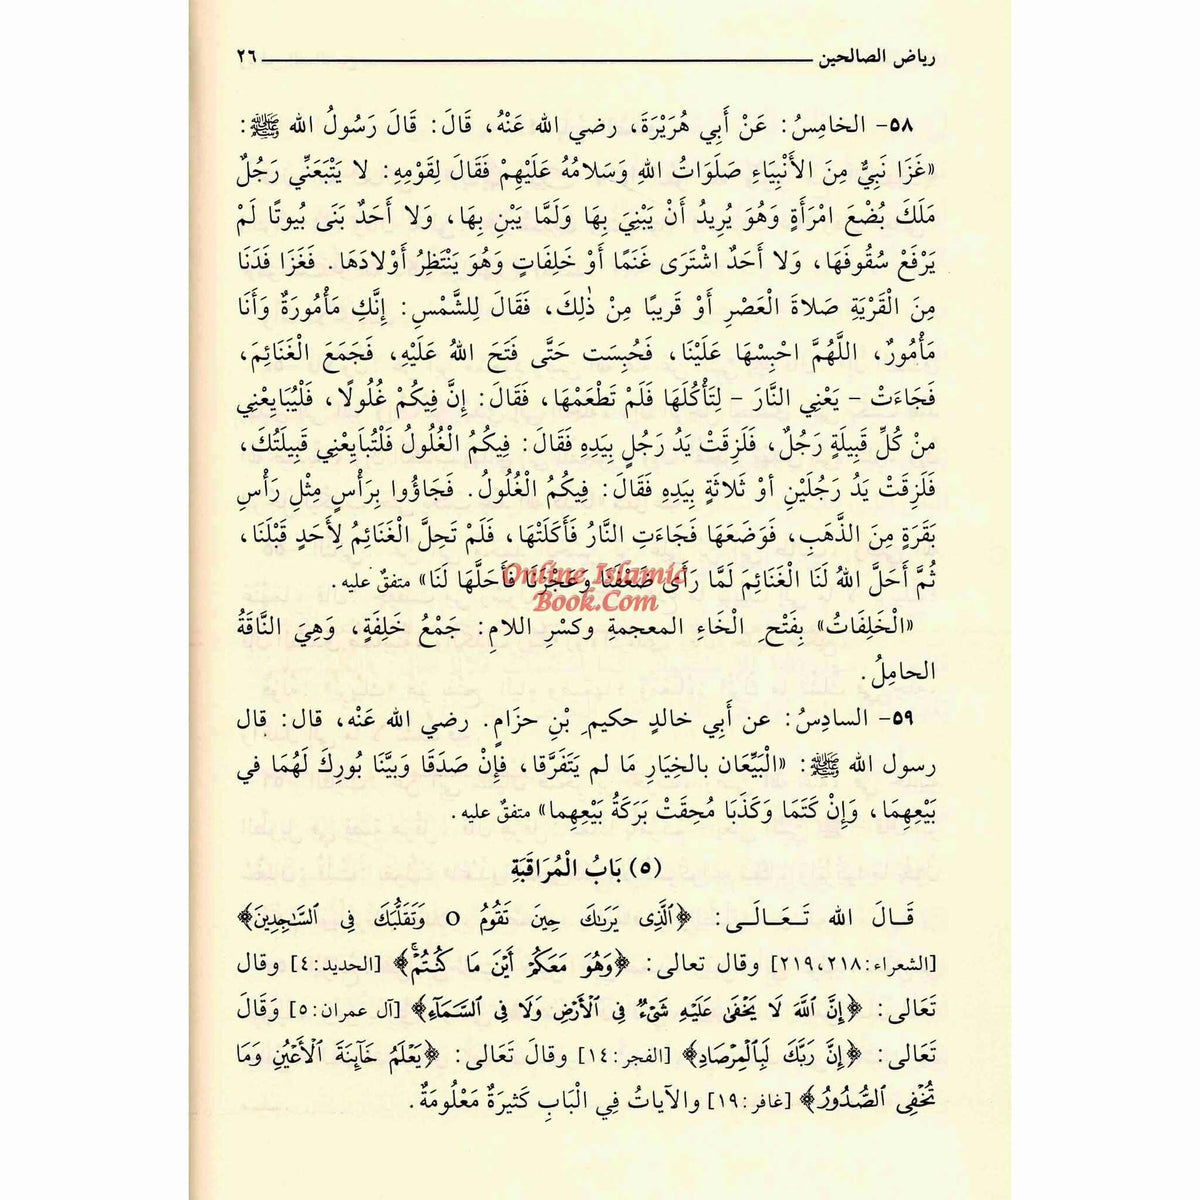 رياض الصالحين ٢٦
٥٨- الخامِسُ: عَنْ أَبِي هُرَيْرَةَ، رضي الله عَنْهُ، قَالَ: قَالَ رَسُولُ الله ﷺ:
«غَزَا نَبِيٌّ مِنَ الأَنْبِيَاءِ صَلَوَاتُ اللهِ وَسَلامُهُ عَلَيْهِمْ فَقَالَ لِقَوْمِهِ: لا يَتْبَعَنِّي رَجُلٌ
مَلَكَ بُضْعَ امْرَأَةٍ وَهُوَ يُرِيدُ أَنْ يَبْنِيَ بِهَا وَلَمَّا يَبْنِ بِهَا، وَلا أَحَدٌ بَنَى بُيوتًا لَمْ
يَرْفَعْ سُقُوفَهَا، وَلا أَحَدٌ اشْتَرَى غَنَمًا أَوْ خَلِفَاتٍ وَهُوَ يَنْتَظِرُ أَوْلادَهَا. فَغَزَا فَدَنَا
مِنَ الْقَرْيَةِ صَلاةَ الْعَصْرِ أَوْ قَريبًا مِنْ ذٰلِكَ، فَقَالَ لِلشَّمْسِ: إِنَّكِ مَأْمُورَةٌ وَأَنَا
مَأْمُورٌ، اللَّهُمَّ احْبِسْهَا عَلَيْنَا، فَحُبِسَت حَتَّى فَتَحَ اللهُ عَلَيْهِ، فَجَمَعَ الْغَنَائِمَ،
فَجَاءَتْ - يَعْنِي النَّارَ - لِتَأْكُلَهَا فَلَمْ تَطْعَمْهَا، فَقَالَ: إِنَّ فِيكُمْ غُلُولًا، فَلْيُبَايِعْنِي
منْ كُلِّ قَبِيلَةٍ رَجُلٌ، فَلَزِقَتْ يَدُ رَجُلٍ بِيَدِهِ فَقَالَ: فِيكُمُ الْغُلُولُ فَلْتُبَايِعْنِي قَبِيلَتُكَ،
فَلَزِقَتْ يَدُ رَجُلَيْنِ أَوْ ثَلاثَةٍ بِيَدِهِ فَقَالَ: فِيكُمُ الْغُلُولُ. فَجَاؤُوا بِرَأْسٍ مِثْلِ رَأْسِ
بَقَرَةٍ مِنَ الذَّهَبِ، فَوَضَعَهَا فَجَاءَتِ النَّارُ فَأَكَلَتْهَا، فَلَمْ تَحِلَّ الْغَنَائِمُ لِأَحَدٍ قَبْلَنَا،
ثُمَّ أَحَلَّ اللهُ لَنَا الْغَنَائِمَ لَمَّا رَأَى ضَعْفَنَا وَعَجْزَنَا فَأَحَلَّهَا لَنَا» متفقٌ عليه.
Online Islamic
Book.Com
«الْخَلِفَاتُ» بِفَتْحِ الْخَاءِ المعجمةِ وكسْرِ اللامِ: جَمْعُ خَلِفَةٍ، وَهِيَ النَّاقَةُ
الحامِلُ.
٥٩- السادِسُ: عن أَبِي خالدٍ حكيمِ بْنِ حزَامٍ. رضي الله عَنْه، قال: قال
رسول الله ﷺ: «الْبَيِّعَان بالخِيَارِ مَا لم يَتَفَرَّقا، فإِنْ صَدَقَا وَبيَّنَا بُورِكَ لَهُمَا في
بَيْعِهِمَا، وَإِنْ كَتَمَا وَكَذَبَا مُحِقَتْ بَرَكَةُ بَيْعِهِما» متفقٌ عليه.
(٥) بَابُ الْمُرَاقَبَةِ
قَـالَ الله تَـعَـالَـى: ﴿ٱلَّذِى يَرَىٰكَ حِينَ تَقُومُ ٥ وَتَقَلُّبَكَ فِى ٱلسَّـٰجِدِينَ﴾
[الشعراء: ٢١٨، ٢١٩] وقال تعالى: ﴿وَهُوَ مَعَكُمْ أَيْنَ مَا كُنتُمْۚ﴾ [الحديد: ٤] وقال
تَعَالى: ﴿إِنَّ ٱللَّهَ لَا يَخْفَىٰ عَلَيْهِ شَىْءٌ فِى ٱلْأَرْضِ وَلَا فِى ٱلسَّمَآءِ﴾ [آل عمران: ٥] وَقَالَ
تَعَالى: ﴿إِنَّ رَبَّكَ لَبِٱلْمِرْصَادِ﴾ [الفجر: ١٤] وقالَ تَعَالى: ﴿يَعْلَمُ خَآئِنَةَ ٱلْأَعْيُنِ وَمَا
تُخْفِى ٱلصُّدُورُ﴾ [غافر: ١٩] والآياتُ فِي الْبَابِ كَثيرَةٌ مَعْلُومَةٌ.